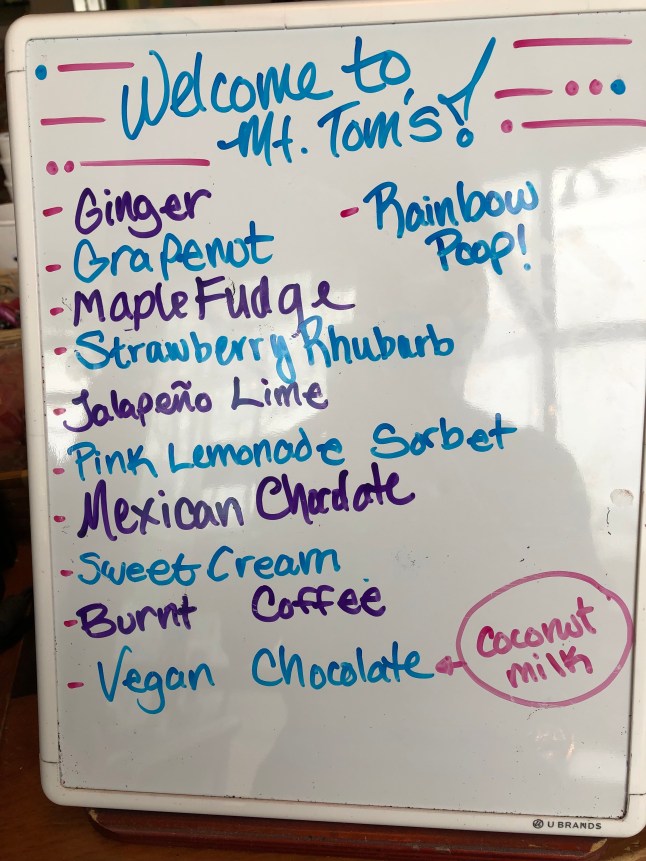 Welcome to
Mt. Tom's!
- Ginger
- Grapenut
- Maple Fudge
- Strawberry Rhubarb
- Jalapeño Lime
- Pink Lemonade Sorbet
- Mexican Chocolate
- Sweet Cream
- Burnt Coffee
- Vegan Chocolate
coconut
milk
- Rainbow
Poop!
U BRANDS